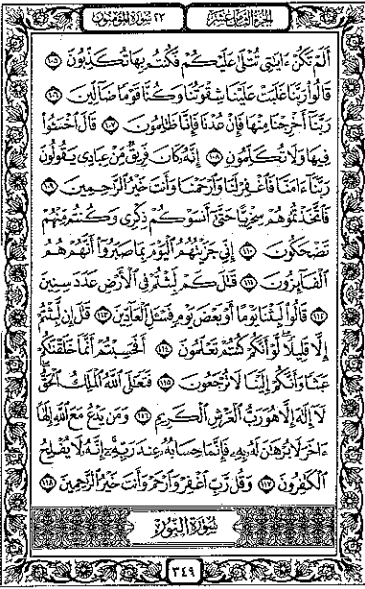 الجزء الثامن عشر ٢٣ سورة المؤمنون
أَلَمْ تَكُنْ ءَايَٰتِي تُتْلَىٰ عَلَيْكُمْ فَكُنتُم بِهَا تُكَذِّبُونَ ١٠٥
قَالُوا۟ رَبَّنَا غَلَبَتْ عَلَيْنَا شِقْوَتُنَا وَكُنَّا قَوْمًا ضَآلِّينَ ١٠٦
رَبَّنَآ أَخْرِجْنَا مِنْهَا فَإِنْ عُدْنَا فَإِنَّا ظَٰلِمُونَ ١٠٧ قَالَ ٱخْسَـُٔوا۟
فِيهَا وَلَا تُكَلِّمُونِ ١٠٨ إِنَّهُۥ كَانَ فَرِيقٌ مِّنْ عِبَادِى يَقُولُونَ
رَبَّنَآ ءَامَنَّا فَٱغْفِرْ لَنَا وَٱرْحَمْنَا وَأَنتَ خَيْرُ ٱلرَّٰحِمِينَ ١٠٩
فَٱتَّخَذْتُمُوهُمْ سِخْرِيًّا حَتَّىٰٓ أَنسَوْكُمْ ذِكْرِى وَكُنتُم مِّنْهُمْ
تَضْحَكُونَ ١١٠ إِنِّى جَزَيْتُهُمُ ٱلْيَوْمَ بِمَا صَبَرُوٓا۟ أَنَّهُمْ هُمُ
ٱلْفَآئِزُونَ ١١١ قَٰلَ كَمْ لَبِثْتُمْ فِى ٱلْأَرْضِ عَدَدَ سِنِينَ
١١٢ قَالُوا۟ لَبِثْنَا يَوْمًا أَوْ بَعْضَ يَوْمٍ فَسْـَٔلِ ٱلْعَآدِّينَ ١١٣ قَٰلَ إِن لَّبِثْتُمْ
إِلَّا قَلِيلًا لَّوْ أَنَّكُمْ كُنتُمْ تَعْلَمُونَ ١١٤ أَفَحَسِبْتُمْ أَنَّمَا خَلَقْنَٰكُمْ
عَبَثًا وَأَنَّكُمْ إِلَيْنَا لَا تُرْجَعُونَ ١١٥ فَتَعَٰلَى ٱللَّهُ ٱلْمَلِكُ ٱلْحَقُّ
لَآ إِلَٰهَ إِلَّا هُوَ رَبُّ ٱلْعَرْشِ ٱلْكَرِيمِ ١١٦ وَمَن يَدْعُ مَعَ ٱللَّهِ إِلَٰهًا
ءَاخَرَ لَا بُرْهَٰنَ لَهُۥ بِهِۦ فَإِنَّمَا حِسَابُهُۥ عِندَ رَبِّهِۦٓ إِنَّهُۥ لَا يُفْلِحُ
ٱلْكَٰفِرُونَ ١١٧ وَقُل رَّبِّ ٱغْفِرْ وَٱرْحَمْ وَأَنتَ خَيْرُ ٱلرَّٰحِمِينَ ١١٨
سُورَةُ النُّورِ
٣٤٩